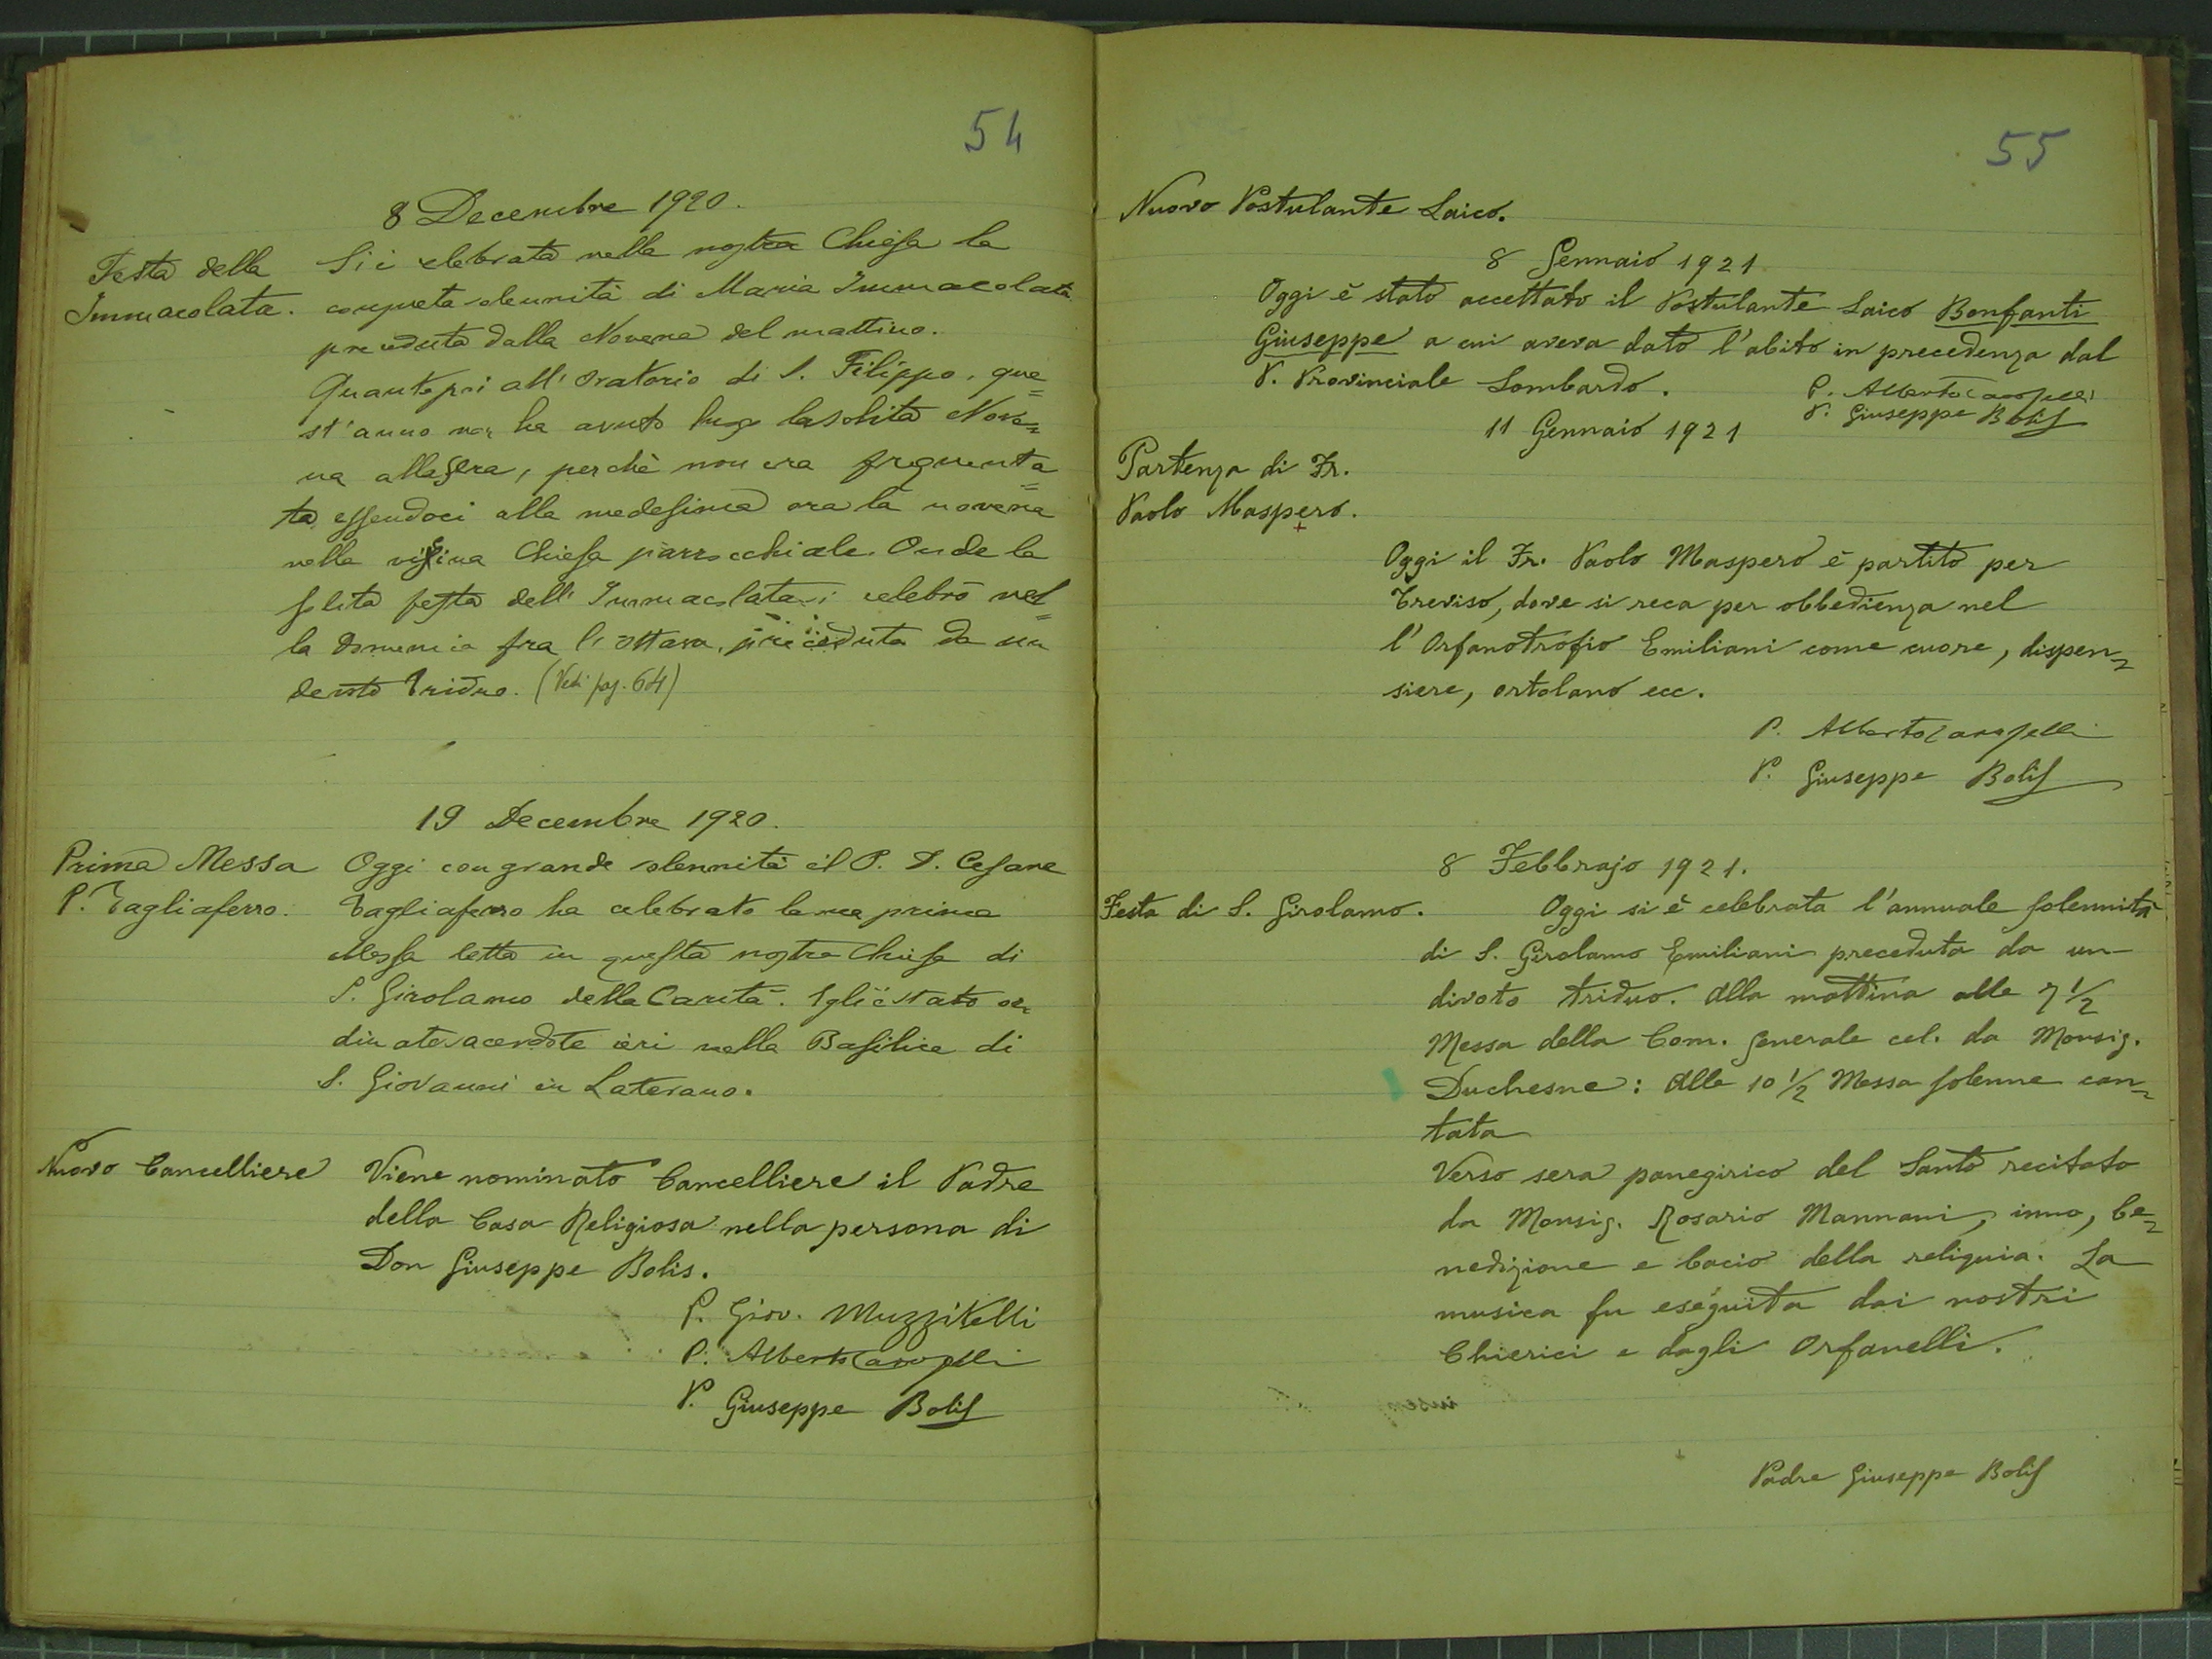 54
8 Decembre 1920.
Festa della
Immacolata.
Si è celebrata nella nostra Chiesa la
consueta solennità di Maria Immacolata
preceduta dalla Novena del mattino.
Quanto poi all' Oratorio di S. Filippo, que=
st'anno non ha avuto luogo la solita Nove=
na alla sera, perchè non era frequenta=
ta, essendoci alla medesima ora la novena
nella vicina Chiesa parrocchiale. Onde la
solita festa dell' Immacolata si celebrò nel=
la Domenica fra l'ottava, preceduta da un
devoto Triduo. (Vedi pag. 64)
19 Decembre 1920.
Prima Messa
P. Tagliaferro.
Oggi con grande solennità il P. D. Cesare
Tagliaferro ha celebrato la sua prima
Messa letta in questa nostra Chiesa di
S. Girolamo della Carità. Egli è stato or=
dinato sacerdote ieri nella Basilica di
S. Giovanni in Laterano.
Nuovo Cancelliere
Viene nominato Cancelliere il Padre
della Casa Religiosa nella persona di
Don Giuseppe Bolis.
P. Giov. Muzzitelli
P. Alberto
P. Giuseppe Bolis
55
Nuovo Postulante Laico.
8 Gennaio 1921
Oggi è stato accettato il Postulante Laico Bonfanti
Giuseppe a cui aveva dato l'abito in precedenza dal
P. Provinciale Lombardo.
P. Alberto
P. Giuseppe Bolis
11 Gennaio 1921
Partenza di Fr.
Paolo Maspero.
Oggi il Fr. Paolo Maspero è partito per
Treviso, dove si reca per obbedienza nel
l'Orfanotrofio Emiliani come cuore, dispen=
siere, ortolano ecc.
P. Alberto
P. Giuseppe Bolis
8 Febbrajo 1921.
Festa di S. Girolamo.
Oggi si è celebrata l'annuale solennità
di S. Girolamo Emiliani preceduta da un
divoto triduo. Alla mattina alle 7 1/2
Messa della Com. Generale cel. da Monsig.
Duchesne: Alle 10 1/2 Messa solenne can=
tata
Verso sera panegirico del Santo recitato
da Monsig. Rosario Mannani, inno, be=
nedizione e bacio della reliquia. La
musica fu eseguita dai nostri
Chierici e dagli Orfanelli.
Padre Giuseppe Bolis